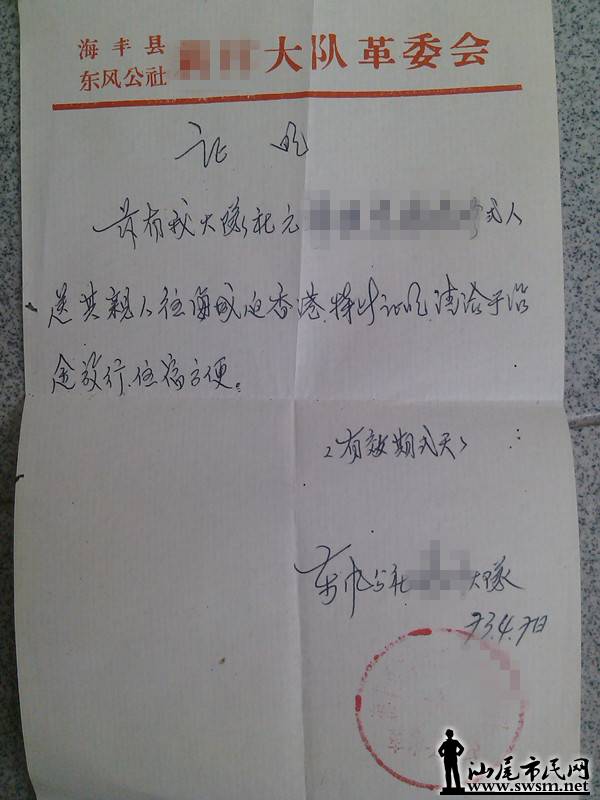 海丰县
东风公社 大队革委会
证 明
兹有我大队社元 弍人
送其親人往海城返香港.特此证明,请给予沿
途放行.住宿方便。
(有效期弍天)
东风公社 大隊
73.4.7日
汕尾市民网
www.swsm.net